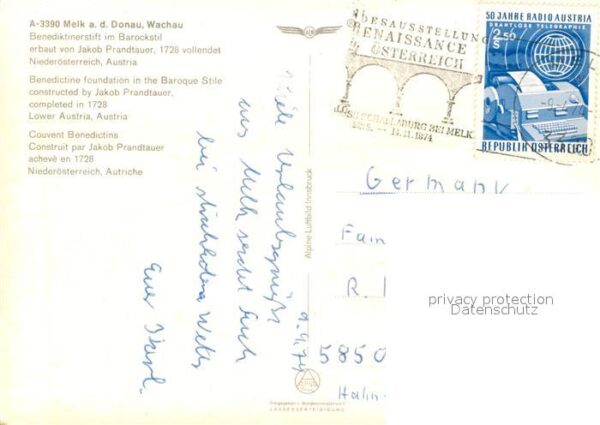 A-3390 Melk a. d. Donau, Wachau
Benediktinerstift im Barockstil
erbaut von Jakob Prandtauer, 1728 vollendet
Niederösterreich, Austria
Benedictine foundation in the Baroque Stile
constructed by Jakob Prandtauer,
completed in 1728
Lower Austria, Austria
Couvent Benedictins
Construit par Jakob Prandtauer
achevé en 1728
Niederösterreich, Autriche
Viele Urlaubsgrüße
aus Melk sendet Euch
bei strahlendem Wetter
Euer
9.9.74
Alpine Luftbild Innsbruck
LANDESAUSSTELLUNG
RENAISSANCE
IN ÖSTERREICH
SCHALLABURG BEI MELK
14.11.1974
50 JAHRE RADIO AUSTRIA
DRAHTLOSE TELEGRAPHIE
2.50
S
REPUBLIK ÖSTERREICH
Germany
Fam
R.
5850
Hohn
privacy protection
Datenschutz
LANDESVERTEIDIGUNG